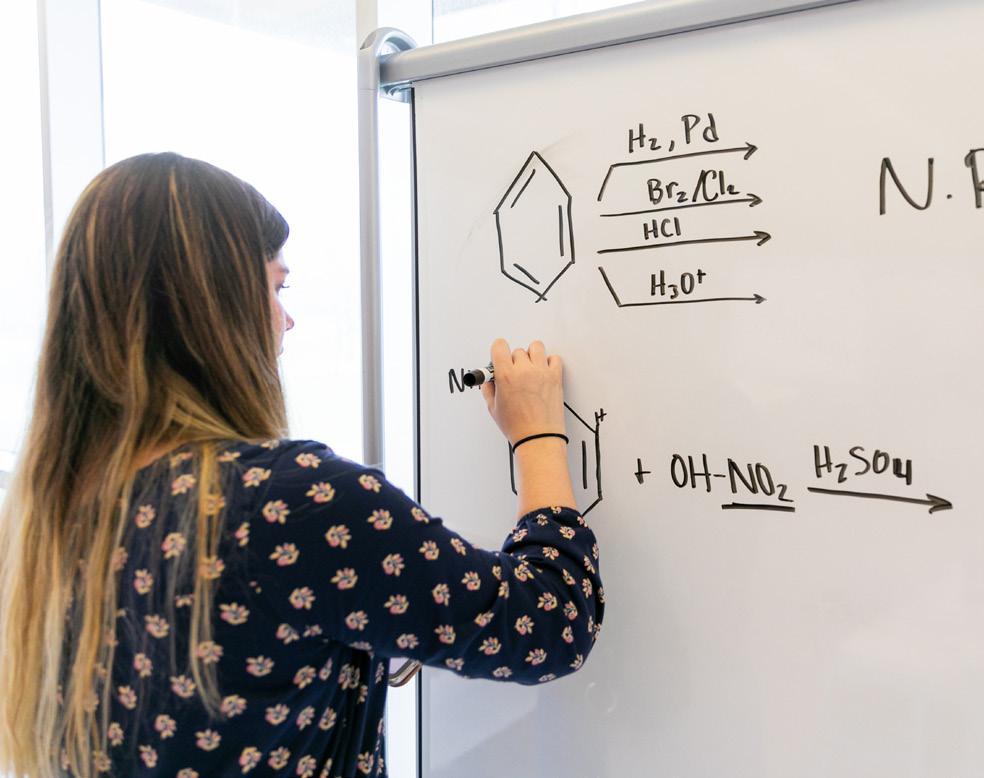 H₂, Pd
Br₂/Cl₂
HCl
H₃O⁺
N.
H
+ OH-NO₂ H₂SO₄